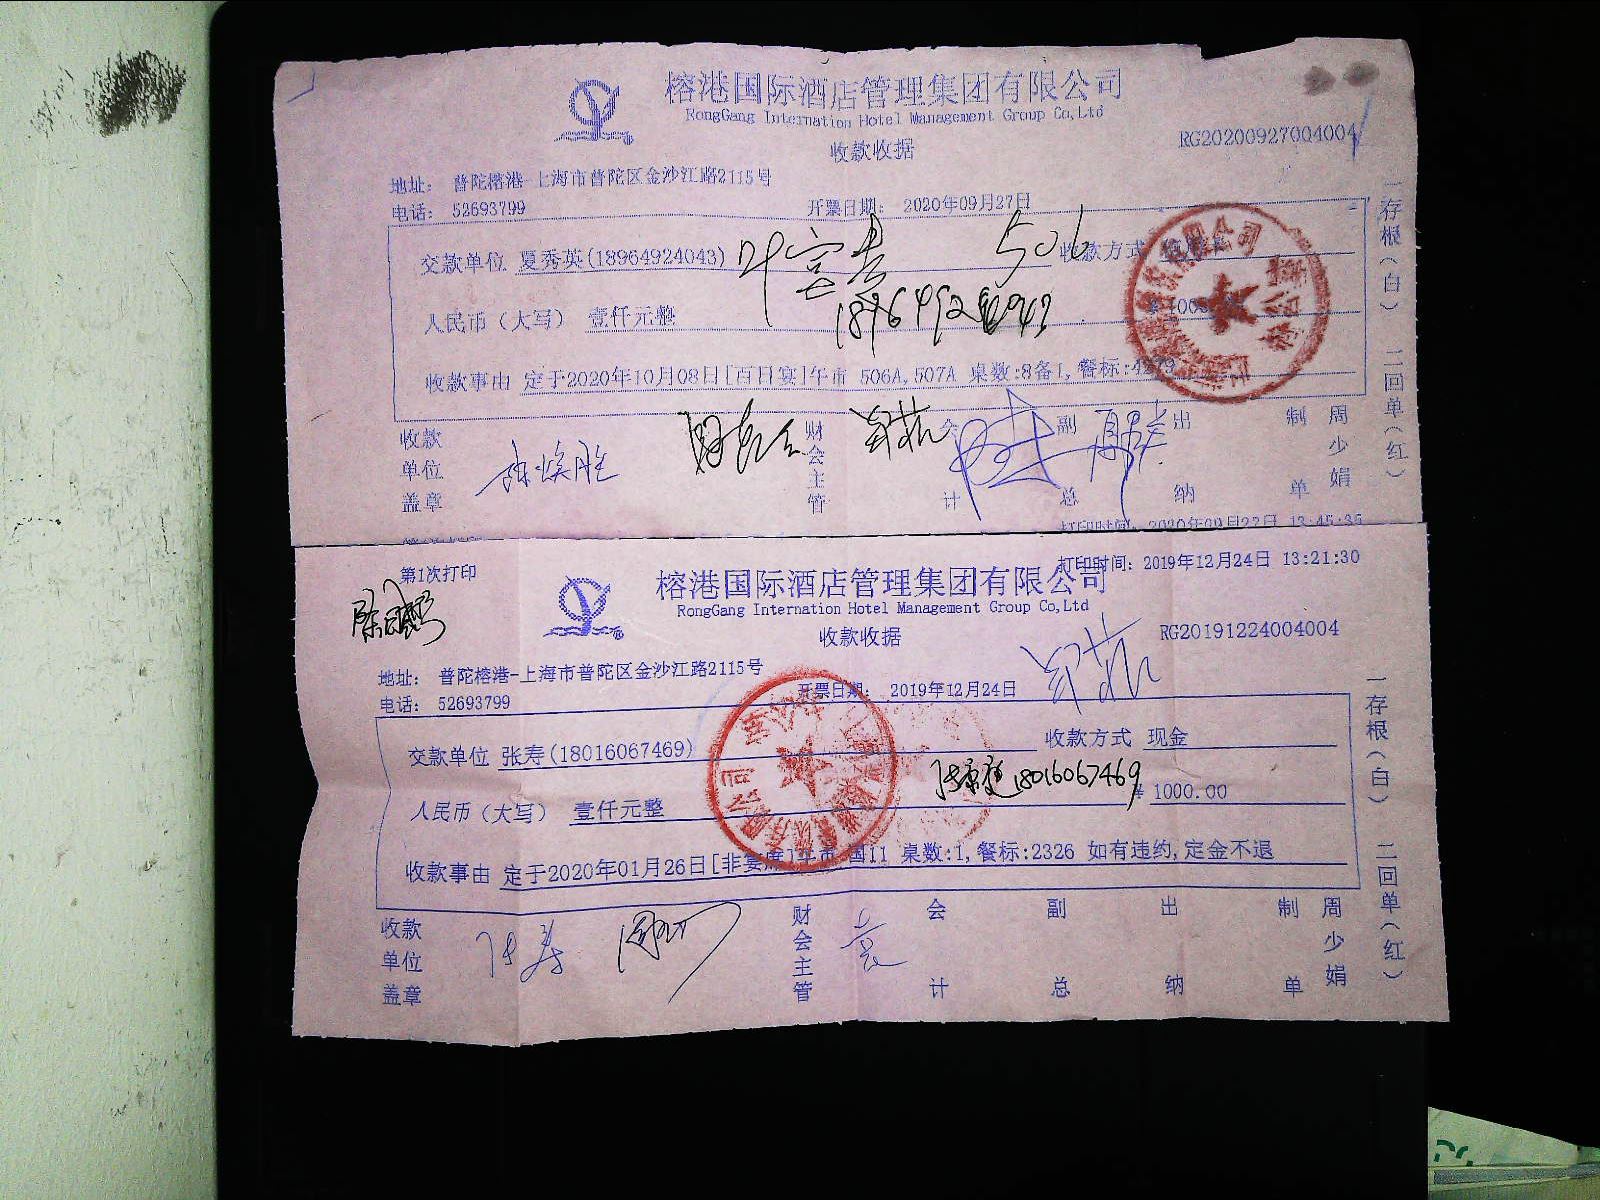 榕港国际酒店管理集团有限公司
RongGang Internation Hotel Management Group Co,Ltd
收款收据
RG20200927004004
地址: 普陀榕港-上海市普陀区金沙江路2115号
电话: 52693799
开票日期: 2020年09月27日
交款单位 夏秀英(18964924043) 叶富贵 506 收款方式
人民币(大写) 壹仟元整
收款事由 定于2020年10月08日[百日宴]午市 506A,507A 桌数:8备1,餐标:4279
收款单位盖章 财会主管 会计 副总 出纳 制单 周少娟
一存根(白) 二回单(红)
打印时间: 2020年09月27日 13:45:35
第1次打印
打印时间: 2019年12月24日 13:21:30
榕港国际酒店管理集团有限公司
RongGang Internation Hotel Management Group Co,Ltd
收款收据
RG20191224004004
地址: 普陀榕港-上海市普陀区金沙江路2115号
电话: 52693799
开票日期: 2019年12月24日
交款单位 张寿(18016067469) 收款方式 现金
18016067469
人民币(大写) 壹仟元整 ¥ 1000.00
收款事由 定于2020年01月26日[非宴席]午市 国11 桌数:1,餐标:2326 如有违约,定金不退
收款单位盖章 张寿 财会主管 会计 副总 出纳 制单 周少娟
一存根(白) 二回单(红)